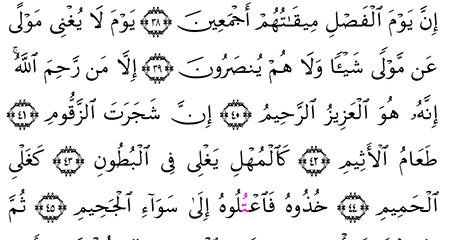 إِنَّ يَوْمَ ٱلْفَصْلِ مِيقَـٰتُهُمْ أَجْمَعِينَ ٣٨ يَوْمَ لَا يُغْنِى مَوْلًى
عَن مَّوْلًى شَيْـًٔا وَلَا هُمْ يُنصَرُونَ ٣٩ إِلَّا مَن رَّحِمَ ٱللَّهُ ۚ
إِنَّهُۥ هُوَ ٱلْعَزِيزُ ٱلرَّحِيمُ ٤٠ إِنَّ شَجَرَتَ ٱلزَّقُّومِ ٤١
طَعَامُ ٱلْأَثِيمِ ٤٢ كَٱلْمُهْلِ يَغْلِى فِى ٱلْبُطُونِ ٤٣ كَغَلْىِ
ٱلْحَمِيمِ ٤٤ خُذُوهُ فَٱعْتُلُوهُ إِلَىٰ سَوَآءِ ٱلْجَحِيمِ ٤٥ ثُمَّ